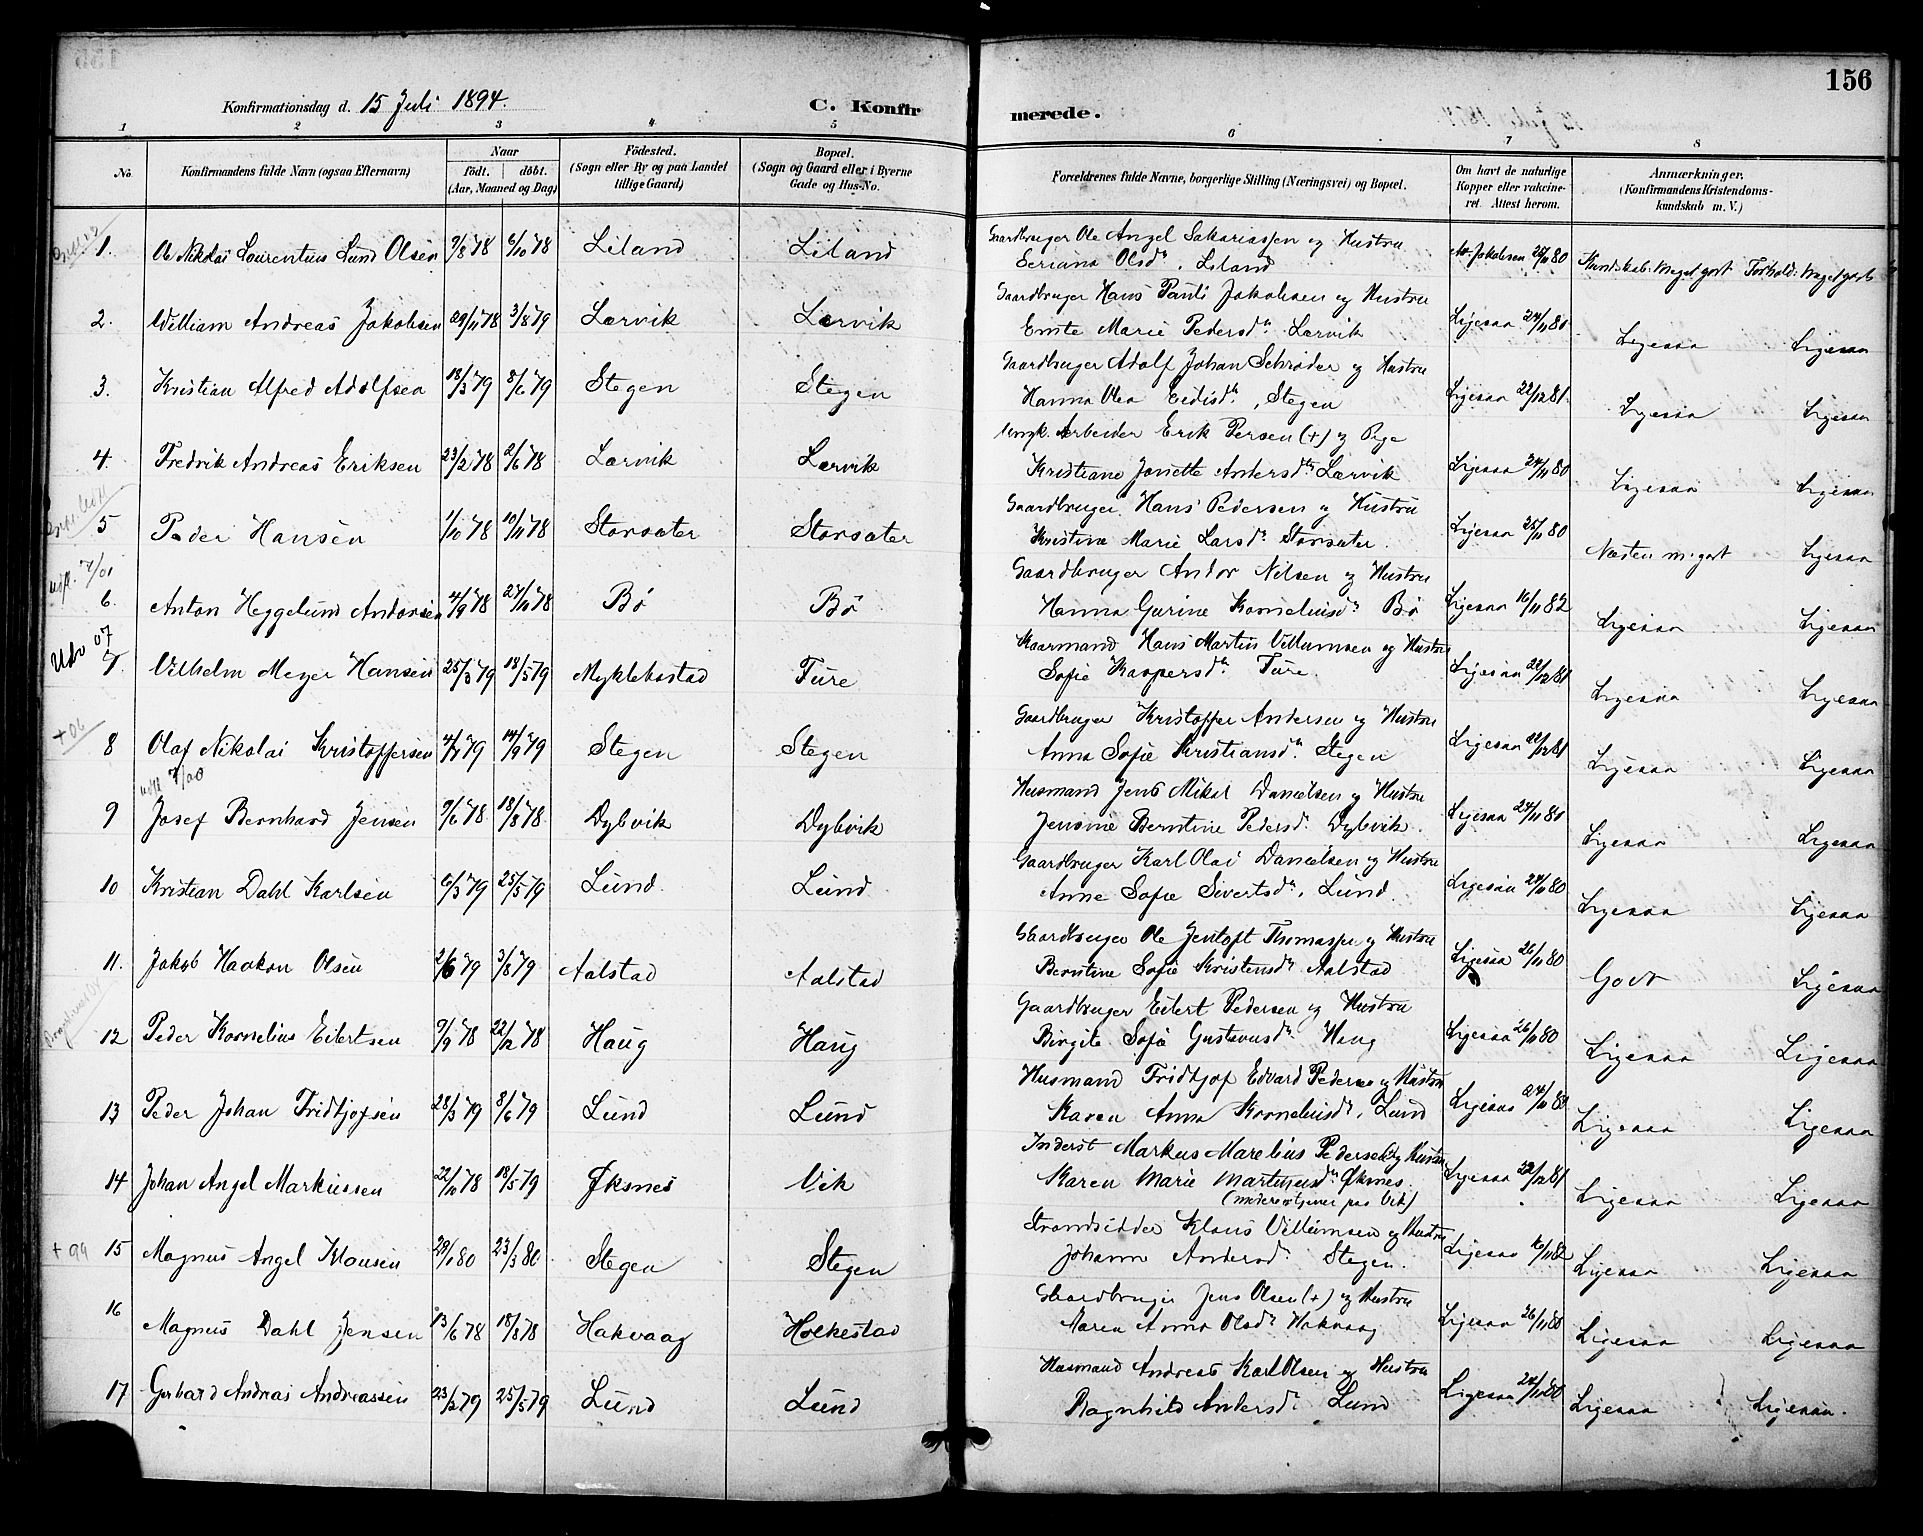 156
Konfirmationsdag d. 15 Juli 1894.
C. Konfir
merede.
1 2 3 4 5 6 7 8
No. Konfirmandens fulde Navn (ogsaa Efternavn) Naar födt. döbt. (Aar, Maaned og Dag) Födested. (Sogn eller By og paa Landet tillige Gaard) Bopæl. (Sogn og Gaard eller i Byerne Gade og Hus-No. Forældrenes fulde Navne, borgerlige Stilling (Næringsvei) og Bopæl. Om havt de naturlige Kopper eller vakcineret. Attest herom. Anmærkninger. (Konfirmandens Kristendomskundskab m. V.)
1. Ole Nikolai Laurentius Lund Olsen 9/8 78 6/10 78 Leland Leland Gaardbruger Ole Angel Sakariassen og Hustru
Seriana Olsdr. Leland Jakobsen 25/11 80 Kundskab: Meget godt Forhold: Meget godt
2. William Andreas Jakobsen 29/11 78 3/8 79 Lærvik Lærvik Gaardbruger Hans Pauli Jakobsen og Hustru
Emte Marie Pedersdr Lærvik Ligesaa 24/11 80 Ligesaa Ligesaa
3. Kristian Alfred Adolfsen 18/3 79 8/6 79 Stegen Stegen Gaardbruger Adolf Johan Schrøder og Hustru
Hanna Olea dr., Stegen Ligesaa 22/12 81. Ligesaa Ligesaa
4. Fredrik Andreas Eriksen 23/2 78 2/6 78 Lærvik Lærvik Arbeider Erik Persen (+) og Pige
Kristiane Jonette Andersdr Lærvik Ligesaa 24/11 80 Ligesaa Ligesaa
5 Peder Hansen 1/10 78 10/11 78 Storsæter Storsæter Gaardbruger Hans Pedersen og Hustru
Kristine Marie Larsdr Storsæter. Ligesaa 25/11 80 Næsten m. godt Ligesaa
utfl. 7/01
6. Anton Heggelund Andorsen 4/9 78 27/10 78 Bø Bø Gaardbruger Andor Nilsen og Hustru
Hanna Gurine Korneliusdr Bø Ligesaa 16/11 82 Ligesaa Ligesaa
Udv 07
7. Vilhelm Meyer Hansen 25/3 79 18/5 79 Myklebostad Fure Kaarmand Hans Martin Villumsen og Hustru
Sofie Kaspersdr Fure. Ligesaa 22/12 81 Ligesaa Ligesaa
+06
8 Olaf Nikolai Kristoffersen 4/7 79 14/9 79 Stegen Stegen Gaardbruger Kristoffer Andersen og Hustru
Anna Sofie Kristiansdr Stegen Ligesaa 22/12 81 Ligesaa Ligesaa
utfl 7/00
9 Josef Bernhard Jensen 9/6 78 18/8 78 Dybvik Dybvik Husmand Jens Mikal Danielsen og Hustru
Jensine Berntine Pedersdr Dybvik. Ligesaa 24/11 80 Ligesaa Ligesaa
10 Kristian Dahl Karlsen 6/3 79 25/5 79 Lund. Lund Gaardbruger Karl Olai Danielsen og Hustru
Anne Sofie Sivertsdr, Lund. Ligesaa 24/11 80 Ligesaa Ligesaa
11. Jakob Haakon Olsen 2/6 79 3/8 79 Aalstad Aalstad Gaardbruger Ole Jentoft Thomassen og Hustru
Berntine Sofie Kristensdr Aalstad Ligesaa 26/11 80 Godt Ligesaa
12 Peder Kornelius Eilertsen 9/9 78 22/12 78 Haug Haug Gaardbruger Eilert Pedersen og Hustru
Birgite Sofie Gustavusdr Haug Ligesaa 26/11 80 Ligesaa Ligesaa
13 Peder Johan Fridtjofsen 28/3 79 8/6 79 Lund Lund Husmand Fridtjof Edvard Pedersen og Hustru
Karen Anna Korneliusdr, Lund Ligesaa 24/11 80 Ligesaa Ligesaa
14 Johan Angel Markussen 22/10 78 18/5 79 Øksnes Vik Inderst Markus Marelius Pedersen og Hustru
Karen Marie Martinusdr Øksnes.
Ligesaa 22/12 81 Ligesaa Ligesaa
+ 99
15 Magnus Angel Klausen 29/1 80 23/3 80 Stegen Stegen Strandsidder Klaus Villumsen og Hustru
Johanna Andersdr Stegen. Ligesaa 16/11 82 Ligesaa Ligesaa
16 Magnus Dahl Jensen 13/6 78 18/8 78 Hakvaag Holkestad Gaardbruger Jens Olsen (+) og Hustru
Maren Anna Olsdr Hakvaag Ligesaa 26/11 80 Ligesaa Ligesaa
17 Gerhard Andreas Andreassen 23/2 79 25/5 79 Lund Lund Husmand Andreas Karl Olsen og Hustru
Ragnhild Andersdr Lund Ligesaa 24/11 80 Ligesaa Ligesaa.